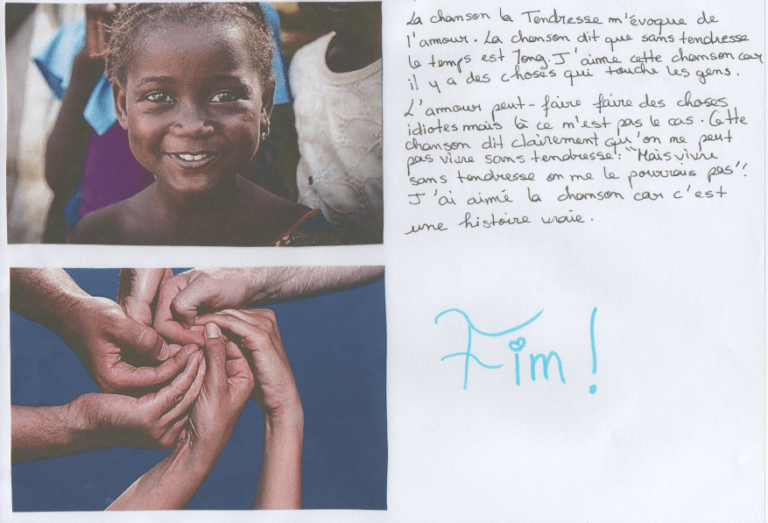 La chanson la Tendresse m'évoque de
l'amour. La chanson dit que sans tendresse
le temps est long. J'aime cette chanson car
il y a des choses qui touche les gens.
L'amour peut-faire faire des choses
idiotes mais là ce m'est pas le cas. Cette
chanson dit clairement qu'on ne peut
pas vivre sans tendresse : "Mais vivre
sans tendresse on ne le pourrais pas"!
J'ai aimé la chanson car c'est
une histoire vraie.
Fim!